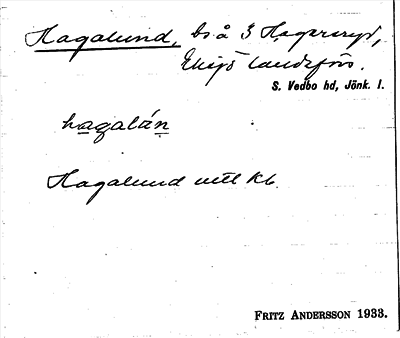 Hagalund, bs å 3 Hagarsryd,
Eksjö landsförs.
S. Vedbo hd, Jönk. l.
hagalán
Hagalund utl Kb.
FRITZ ANDERSSON 1933.